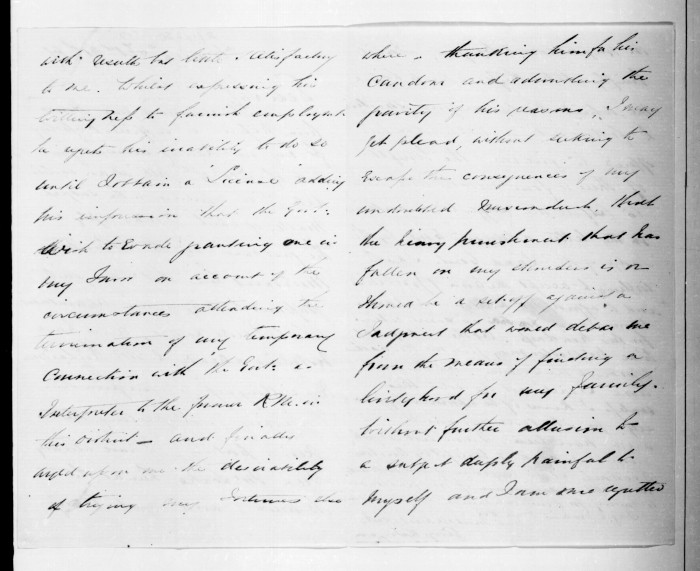 with results but little satisfactory
to me. Whilst expressing his
willingness to furnish employment
he regrets his inability to do so
until I obtain a "License" adding
his impression that the Govt.
wish to evade granting one in
my Turn on account of the
circumstances attending the
termination of my temporary
connection with the Govt. as
Interpreter to the former R.M. in
this District — and finally
urged upon me the desirability
of trying my fortunes else
where. Thanking him for his
candour and admitting the
purity of his reasons, I may
yet plead, without seeking to
escape the consequences of my
undoubted misconduct that
the heavy punishment that has
fallen on my shoulders is or
should be a set off against a
Judgment that would debar me
from the means of finding a
livelyhood for my family.
Without further allusion to
a subject deeply painful to
myself and I am sure regretted